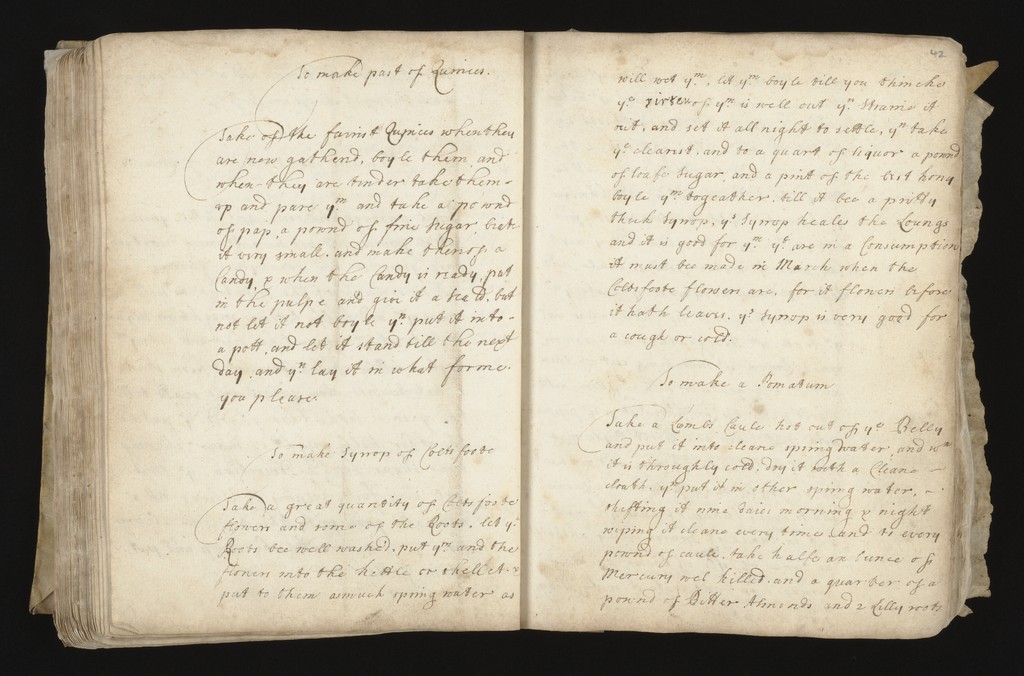 To make past of Quinces.
Take of the fairist Quinces when they
are new gatherd, boyle them, and
when they are tinder take them
vp and pare yᵐ and take a pownd
of pap, a pownd of fine sugar, beat
it very small, and make thereof a
Candy, & when the Candy is ready, put
in the pulpe and give it a scald, but
not let it not boyle yⁿ put it into
a pott, and let it stand till the next
day, and yⁿ lay it in what forme
you please
To make Syrop of Colts foote
Take a great quantity of Colts foote
flowers and some of the Roots. let yᵉ
Roots bee well washed, put yᵐ and the
flowers into the kettle or skellet &
put to them asmuch spring water as
42
will wet yᵐ, let yᵐ boyle till you thincke
yᵉ virteu of yᵐ is well out yⁿ straine it
out, and set it all night to settle, yⁿ take
yᵉ clearest, and to a quart of liquor a pownd
of loafe sugar, and a pint of the best hony
boyle yᵐ togeather, till it bee a pritty
thick Syrop, yˢ Syrop heales the Loungs
and it is good for yᵐ yᵗ are in a Consumption
it must bee made in March when the
Coltsfoote flowers are, for it flowers before
it hath leaves. yˢ Syrrop is very good for
a cough or cold.
To make a Pomatum
Take a Lambs Caule hot out of yᵉ Belly
and put it into cleane spring water, and wⁿ
it is throughly cold, dry it with a Cleane
cloath, yⁿ put it in other spring water,
shifting it nine daies morning & night
wiping it cleane every time, and to every
pownd of caule, take halfe an Ounce of
Mercury wel killed, and a quarter of a
pound of Bitter Almonds and 2 Lilly roots